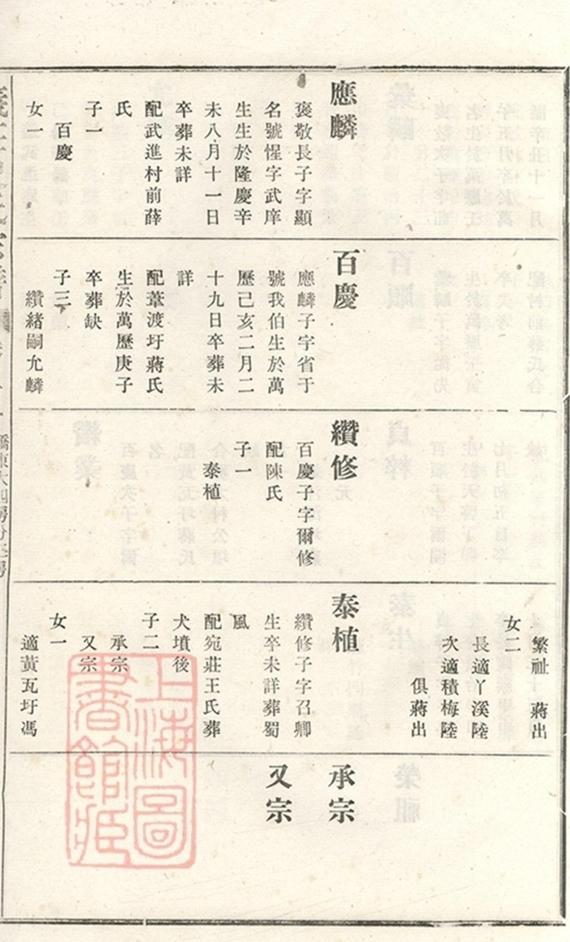 應麟
褒敬長子字顯
名號惺字武庠
生生於隆慶辛
未八月十一日
卒葬未詳
配武進村前薛
氏
子一
百慶
女一
百慶
應麟子字省于
號我伯生於萬
歷己亥二月二
十九日卒葬未
詳
配葦渡圩蔣氏
生於萬歷庚子
卒葬缺
子三
纘緒嗣允麟
纘修
百慶子字爾修
配陳氏
子一
泰植
繁祉 蔣出
女二
長適丫溪陸
次適積梅陸
俱蔣出
泰植
纘修子字召卿
生卒未詳葬蜀
風
配宛莊王氏葬
犬墳後
子二
承宗
又宗
女一
適黃瓦圩馮
承宗
又宗
上海圖書館藏